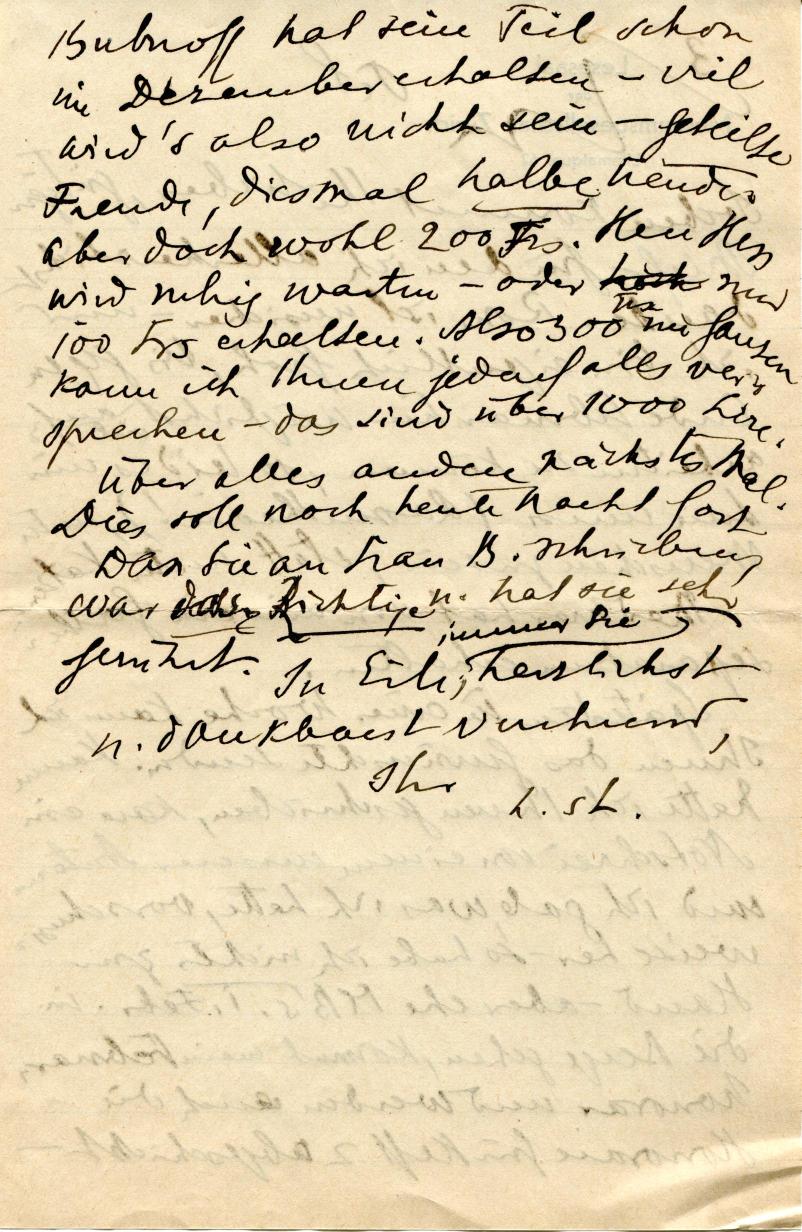 Bubnoff hat sein Teil schon
im Dezember erhalten – viel
wird's also nicht sein – geteilte
Freude, diesmal halbe Freude.
aber doch wohl 200 Frs. Herr Hess
wird ruhig warten – oder nur
100 Frs erhalten. Also 300 frs im ganzen
kann ich Ihnen jedenfalls ver-
sprechen – das sind über 1000 Lire.
Über alles andere nächstes Mal.
Dies soll noch heute Nacht fort
Dass Sie an Frau B. schrieben,
war das Richtige u. hat sie sehr
gerührt. In Eile, herzlichst
immer Sie
u. dankbarst verehrend,
Ihr
L. St.